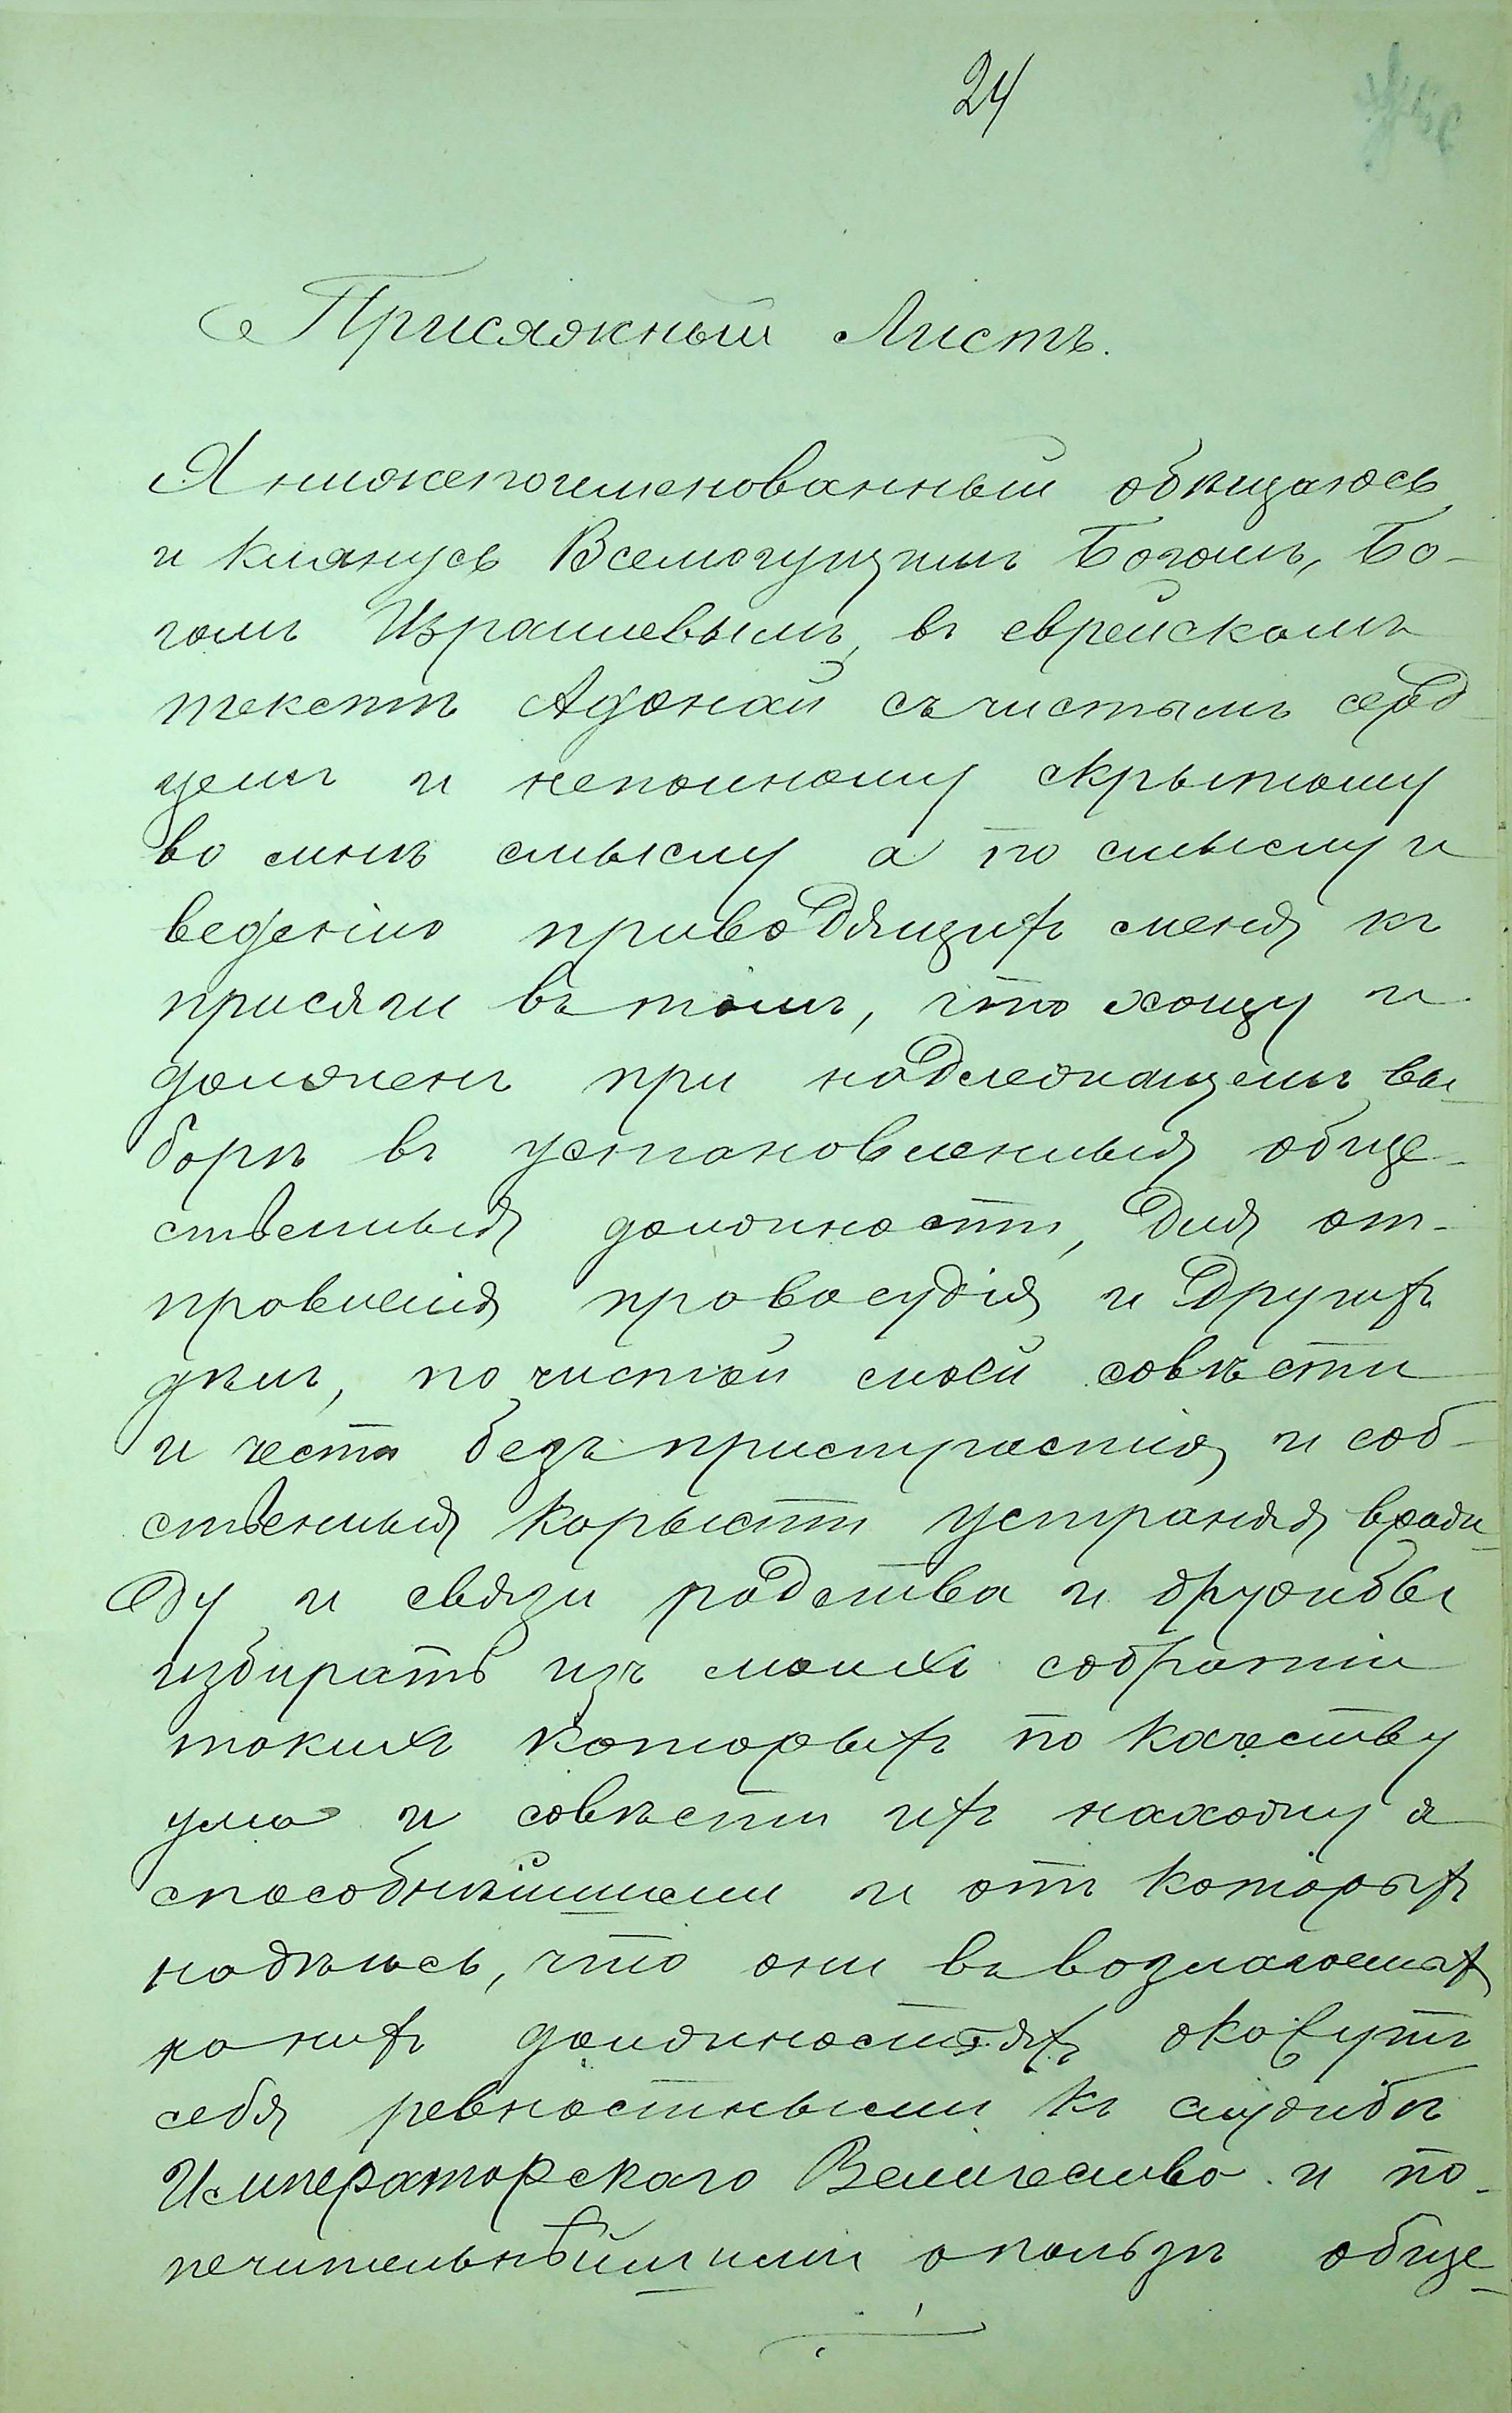 24
Присяжный Листъ.
Я нижепоименованный обѣщаюсь
и клянусь Всемогущимъ Богомъ, Бо-
гомъ Израилевымъ, въ еврейскомъ
текстѣ Адонай съ чистымъ серд
цемъ и непоиному скрытому
во мнѣ смыслу а по смыслу и
веденію приводящихъ меня къ
присяги въ томъ, что хощу и
долженъ при надлежащемъ вы-
борѣ въ установленныя обще-
ственныя должности, для от-
правленія правосудія и другихъ
дѣлъ, по чистой моей совѣсти
и чести безъ пристрастія и соб-
ственныя корысти устраняя вражи-
ду и связи родства и дружбы
избирать изъ моихъ собратіи
такихъ которыхъ по качеству
ума и совѣсти ихъ нахожу я
способнѣйшими и отъ которыхъ
надѣюсь, что они въ возлагаемыхъ
на нихъ должностяхъ окажутъ
себя ревностными къ службѣ
Императорскаго Величество и по-
печительнѣйшими о пользѣ обще-